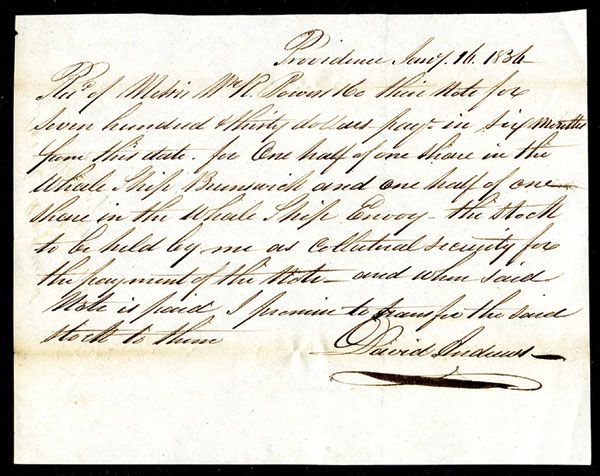 Providence Jany. 26. 1836
Rec'd of Messrs Wm R. Powers & Co their Note for
Seven hundred & thirty dollars pay.e in six Months
from this date. for One half of one share in the
Whale Ship Brunswick and one half of one
share in the Whale Ship Envoy – the stock
to be held by me as Collateral security for
the payment of the Note – and when said
Note is paid I promise to transfer the said
stock to them
David Andrews –